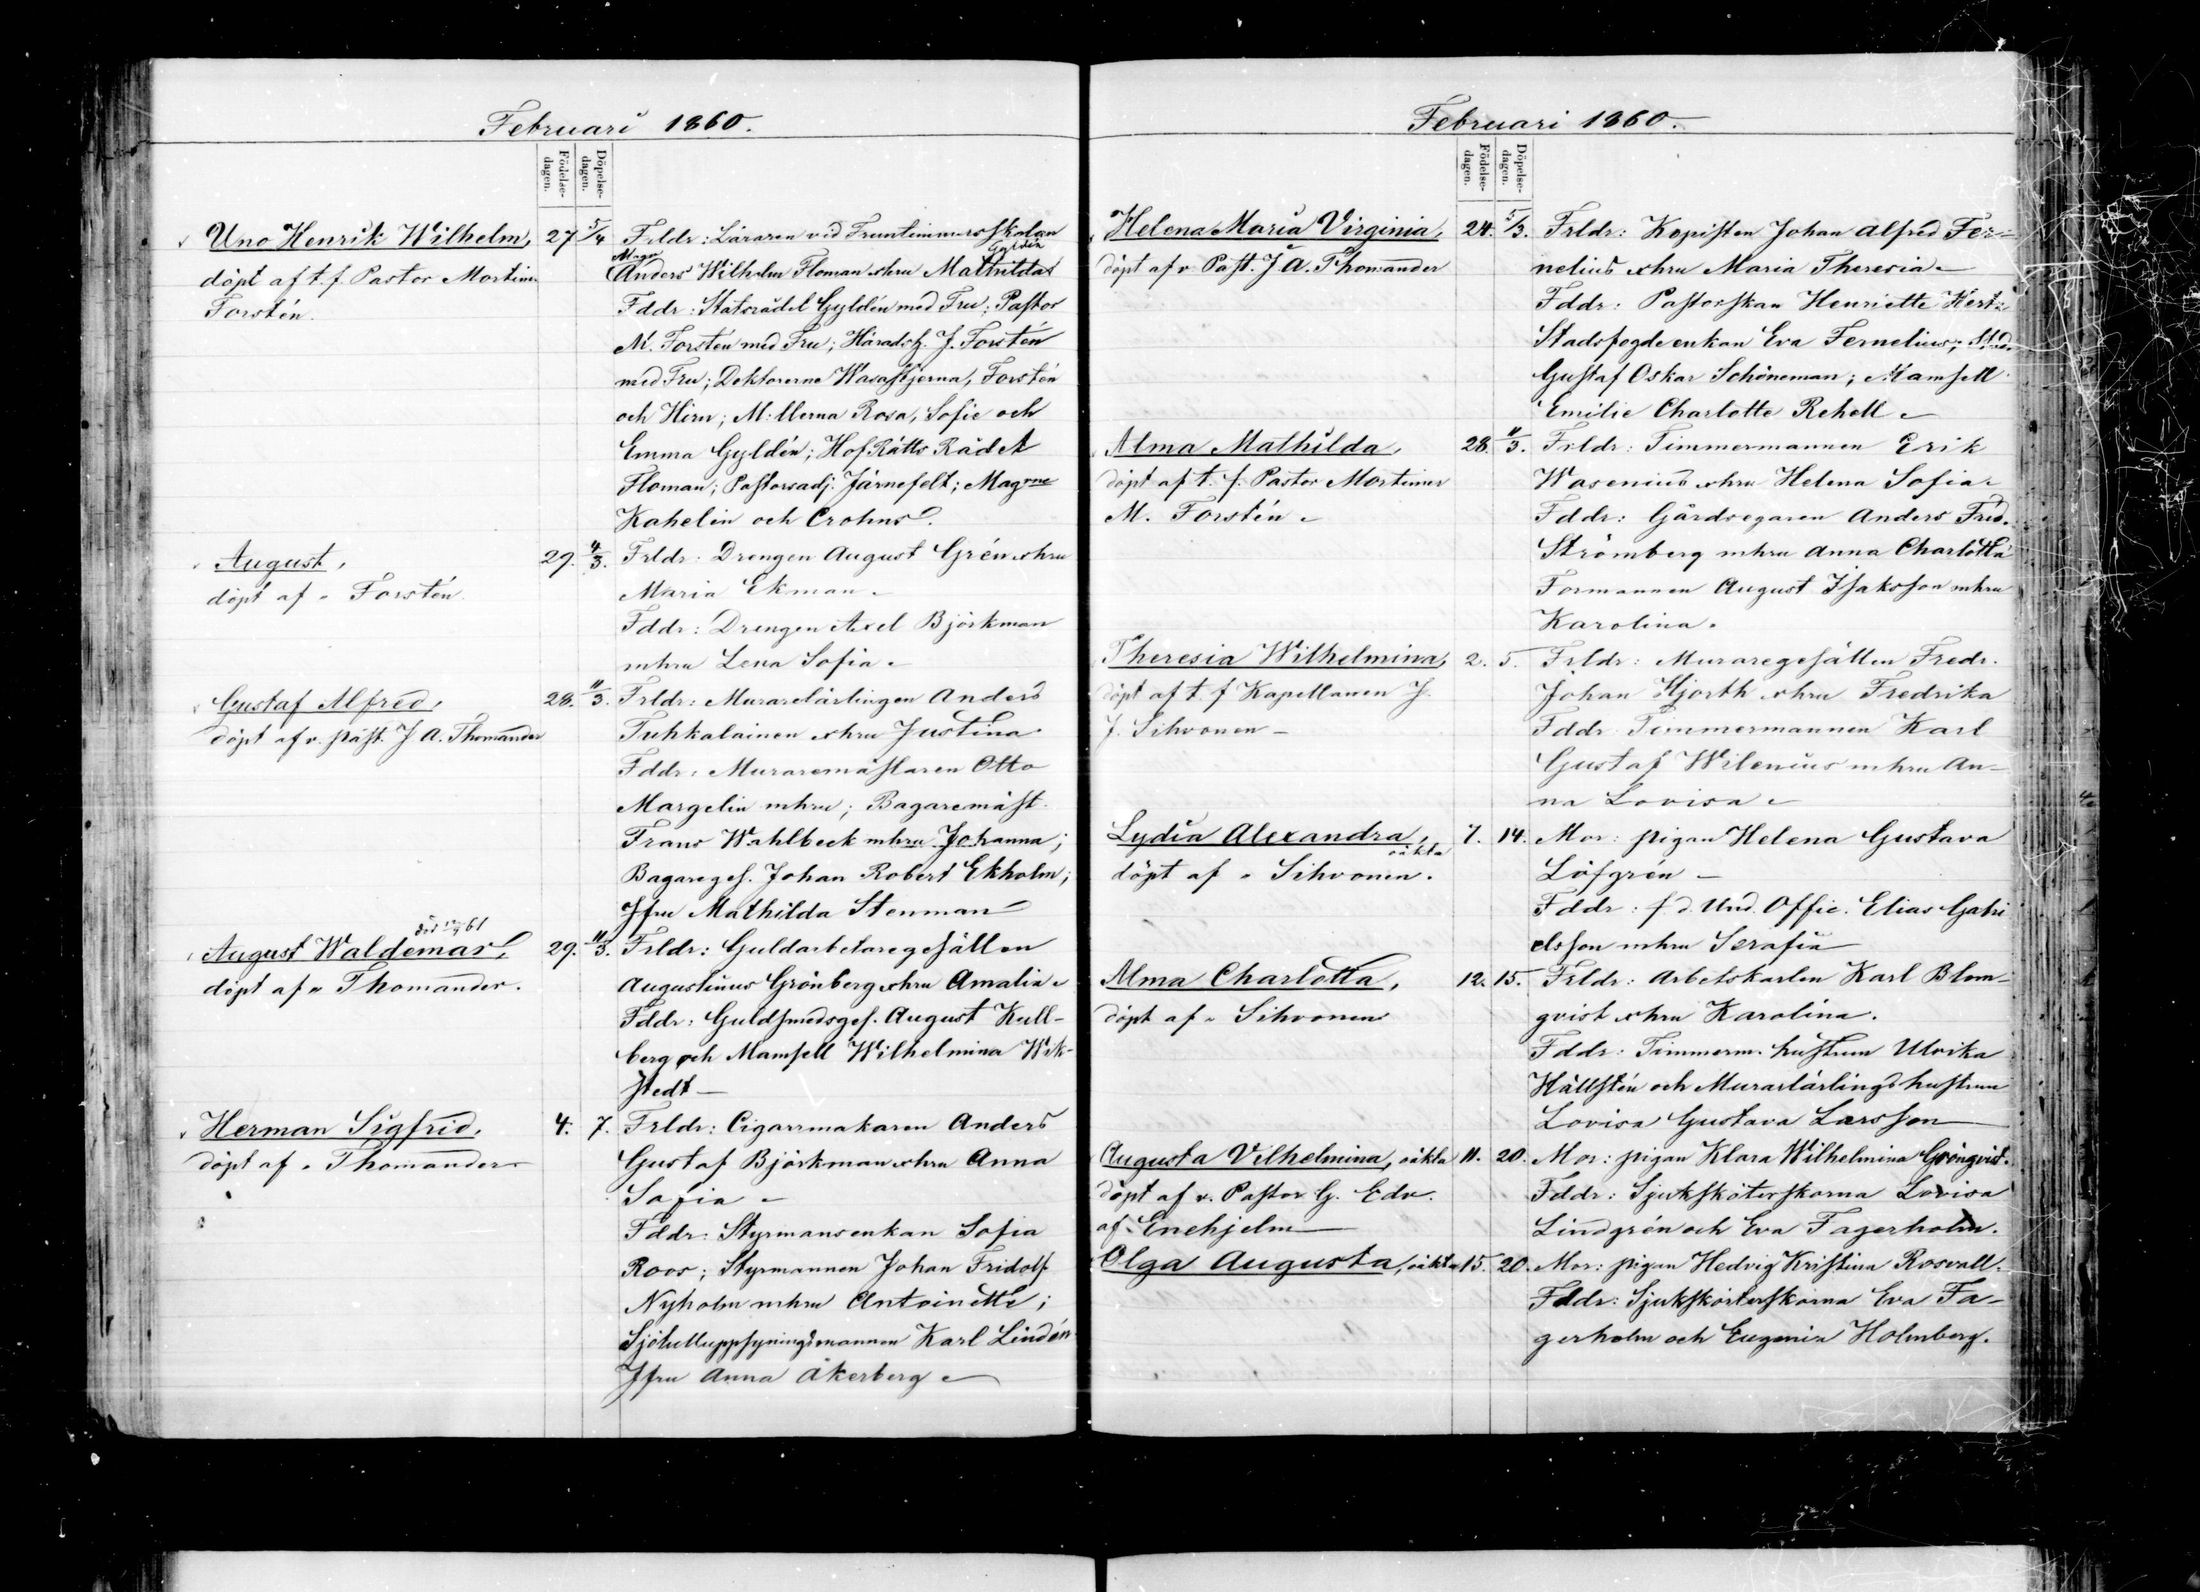 Februari 1860.
Födelse-dagen.
Döpelse-dagen.
Uno Henrik Wilhelm, 27 5/4 Frldr: Läraren vid Fruntimmersskolan
döpt af t. f. Pastor Mortimer
Forstén.
Mag: Anders Wilhelm Floman o hru Mathilda Gyldén
Fddr: Statsrådet Gyldén med Fru; Pastor
M. Forstén med Fru; Häradsh. J. Forstén
med Fru; Doktorerna Wasastjerna, Forstén
och Hirn; M:llerna Rosa, Sofie och
Emma Gyldén; HofRätts Rådet
Floman; Pastorsadj. Järnefelt; Magrne
Kahelin och Crohns.
August, 29. 4/3. Frldr: Drengen August Grén o hru
döpt af " Forstén
Maria Ekman.
Fddr: Drengen Axel Björkman
mhru Lena Sofia.
Gustaf Alfred, 28. 11/3. Frldr: Murarelärlingen Anders
döpt af v. past. J A. Thomander
Tuhkalainen o hru Justina
Fddr: Muraremästaren Otto
Margelin mhru; Bagaremäst.
Frans Wahlbeck mhru Johanna;
Bagareges. Johan Robert Ekholm;
Jfru Mathilda Stenman
död 61
August Waldemar, 29. 11/3. Frldr: Guldarbetaregesällen
döpt af " Thomander.
Augustinus Grönberg o hru Amalia.
Fddr: Guldsmedsges. August Kull-
berg och Mamsell Wilhelmina Wik-
stedt
Herman Sigfrid, 4. 7. Frldr: Cigarrmakaren Anders
döpt af " Thomander
Gustaf Björkman o hru Anna
Sofia
Fddr: Styrmansenkan Sofia
Roos; Styrmannen Johan Fridolf
Nyholm mhru Antoinette;
Sjötulluppsyningsmannen Karl Lindén
Jfru Anna Åkerberg
Februari 1860.
Födelse-dagen.
Döpelse-dagen.
Helena Maria Virginia, 24. 5/3. Frldr: Kopisten Johan Alfred Fer-
döpt af v. Past. J A. Thomander
nelius o hru Maria Theresia
Fddr: Pastorskan Henriette Hertz
Stadsfogdeenkan Eva Fernelius; Stud.
Gustaf Oskar Schöneman; Mamsell
Emilie Charlotte Rehell
Alma Mathilda, 28. 11/3. Frldr: Timmermannen Erik
döpt af t. f. Pastor Mortimer
M. Forstén
Wasenius o hru Helena Sofia
Fddr: Gårdsegaren Anders Fred.
Strömberg mhru Anna Charlotta
Formannen August Isaksson mhru
Karolina.
Theresia Wilhelmina, 2. 5. Frldr: Muraregesällen Fredr.
döpt af t. f Kapellanen J.
J. Sihvonen
Johan Hjorth o hru Fredrika
Fddr Timmermannen Karl
Gustaf Wilenius mhru An-
na Lovisa
Lydia Alexandra, oäkta 7. 14. Mor: pigan Helena Gustava
döpt af " Sihvonen.
Löfgrén
Fddr: f. d. Und. Offic. Elias Gabri
elsson mhru Serafia
Alma Charlotta, 12. 15. Frldr: Arbetskarlen Karl Blom-
döpt af " Sihvonen
qvist o hru Karolina.
Fddr: Timmerm. hustrun Ulrika
Hällstén och Murarlärlingshustrun
Lovisa Gustava Larsson
Augusta Vilhelmina, oäkta 11. 20. Mor: pigan Klara Wilhelmina Grönqvist.
döpt af v. Pastor G. Edv.
af Enehjelm
Fddr: Sjuksköterskorna Lovisa
Lindgrén och Eva Fagerholm.
Olga Augusta, oäkta 15. 20. Mor: pigan Hedvig Kristina Rosvall.
Fddr: Sjuksköterskorna Eva Fa-
gerholm och Eugenia Holmberg.